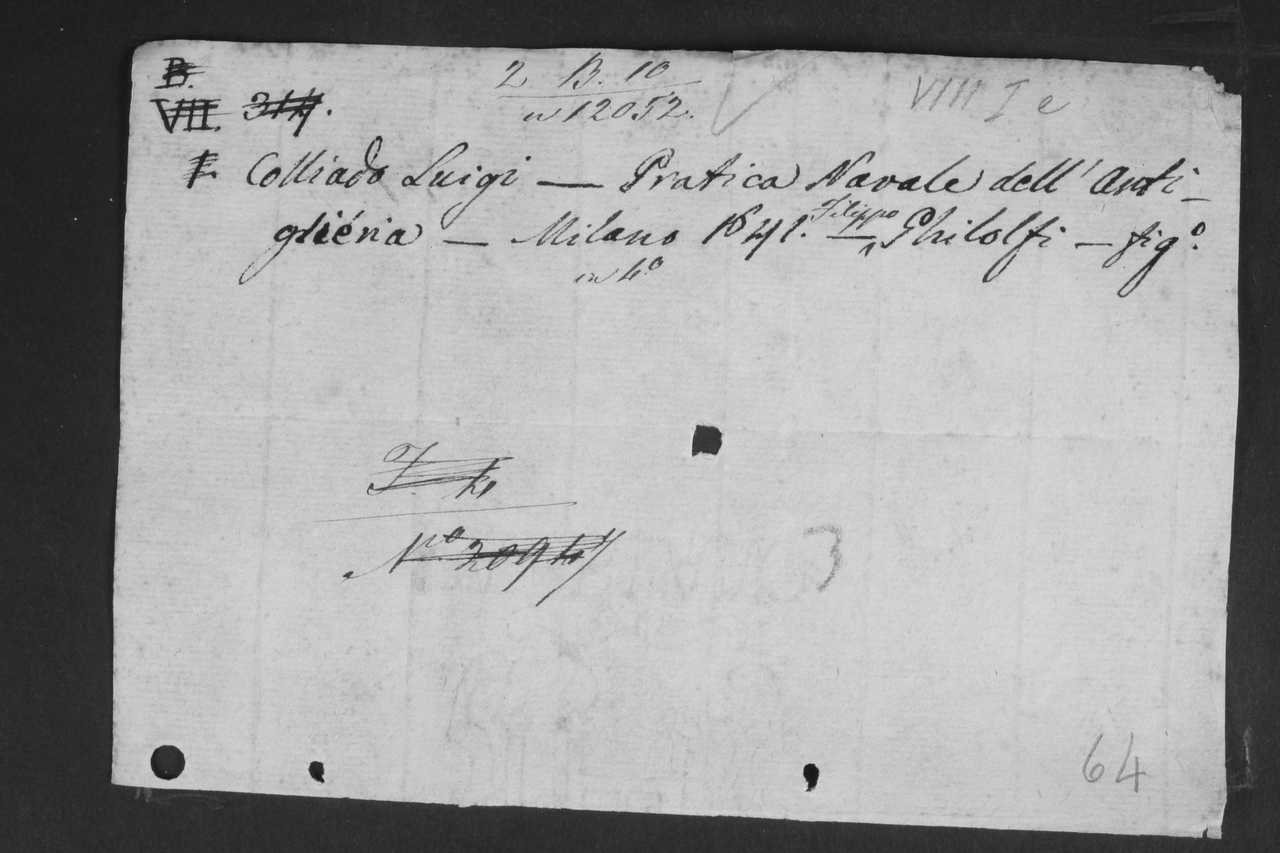 B.
2 B. 10
VIII I e
VII. 314.
n 12052.
E. Colliado Luigi — Pratica Navale dell' Arti-
glieria — Milano 1641. — Filippo Ghilolfi — fig.º
in 4º
J. 4
Nº 2094
3
64